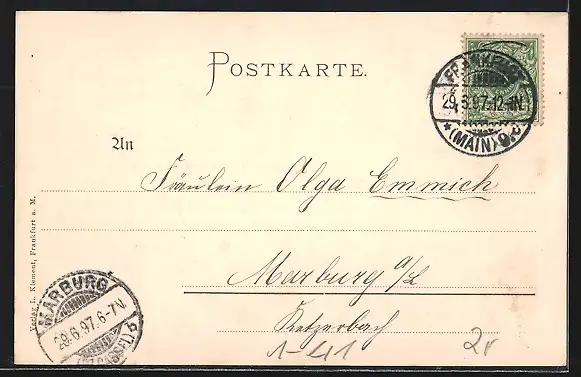 POSTKARTE.
FRANKFURT
29.6.97.12-1N.
*(MAIN)9.c
An
Fräulein Olga Emmich
Marburg a/L
Ketzerbach
1-41
2v
Verlag L. Klement, Frankfurt a. M.
MARBURG
29.6.97.6-7N.